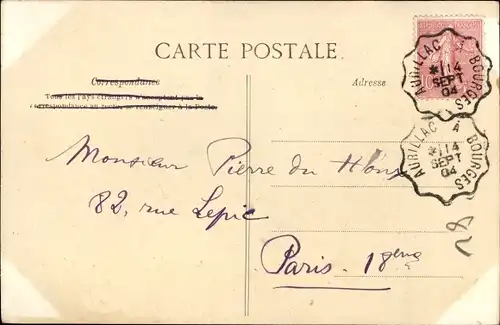 CARTE POSTALE.
Correspondance
Adresse
Tous les pays étrangers n'acceptant pas la
correspondance au recto, se renseigner à la Poste.
AURILLAC A BOURGES
*114
SEPT
04
AURILLAC A BOURGES
*114
SEPT
04
Monsieur Pierre du
82, rue Lepic
Paris. 18ème